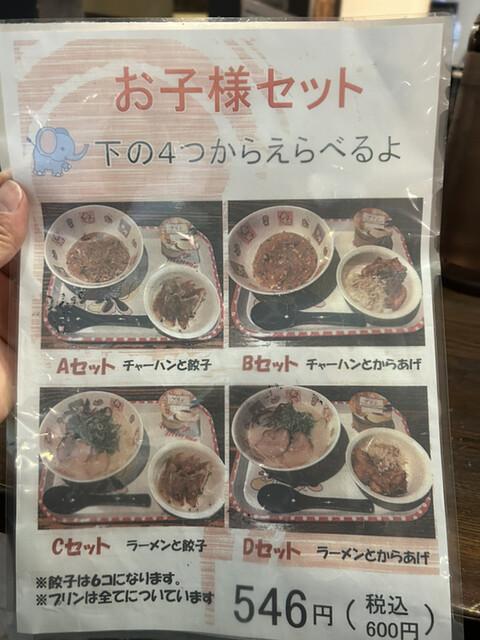 お子様セット
下の4つからえらべるよ
Aセット チャーハンと餃子
Bセット チャーハンとからあげ
Cセット ラーメンと餃子
Dセット ラーメンとからあげ
※餃子は6コになります。
※プリンは全てについています
546円(税込600円)